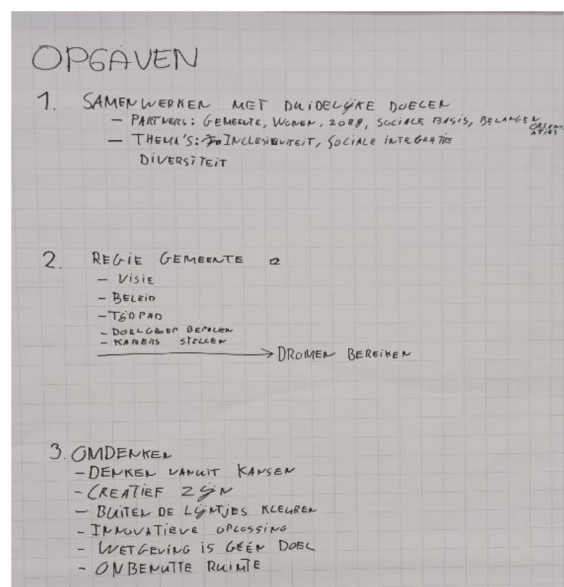 OPGAVEN
1. SAMENWERKEN MET DUIDELIJKE DOELEN
- PARTNERS: GEMEENTE, WONEN, ZORG, SOCIALE BASIS, BELANGEN ORGANISATIES
- THEMA'S: INCLUSIVITEIT, SOCIALE INTEGRATIE
DIVERSITEIT
2. REGIE GEMEENTE
- VISIE
- BELEID
- TIJDPAD
- DOELGROEP BEPALEN
- KADERS STELLEN
→ DROMEN BEREIKEN
3. OMDENKEN
- DENKEN VANUIT KANSEN
- CREATIEF ZIJN
- BUITEN DE LIJNTJES KLEUREN
- INNOVATIEVE OPLOSSING
- WETGEVING IS GÉÉN DOEL
- ONBENUTTE RUIMTE